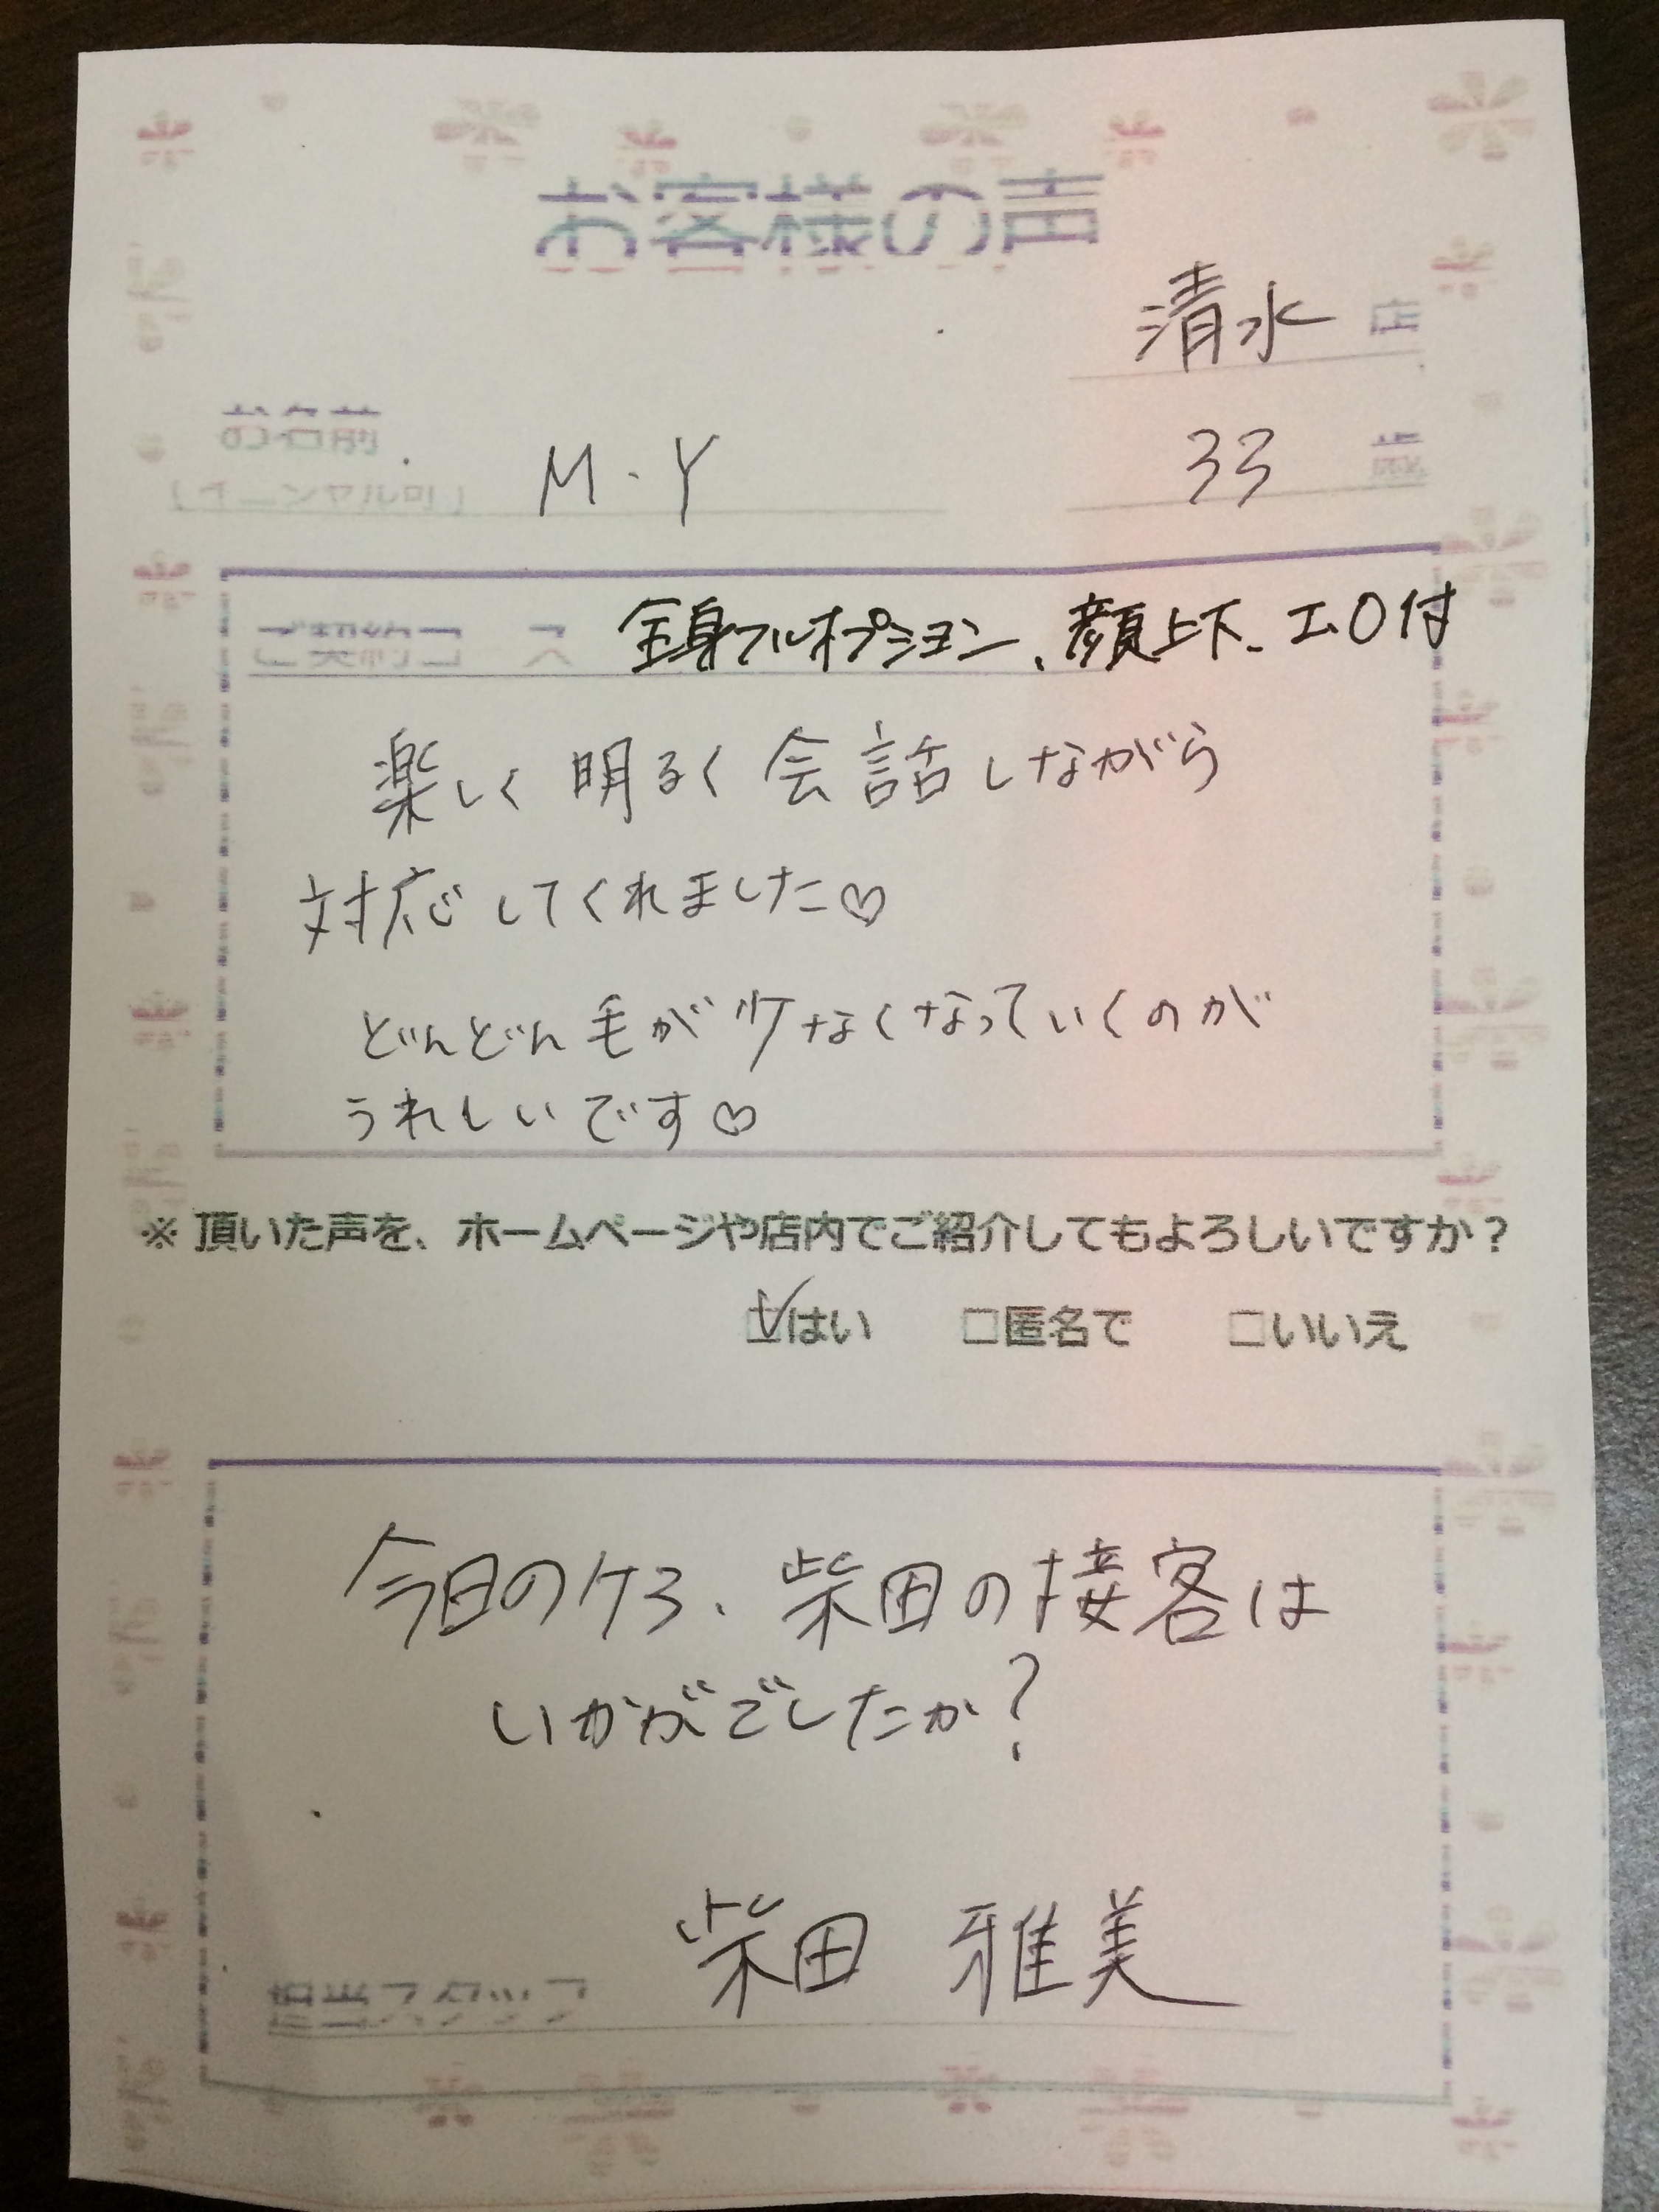 お客様の声
清水 店
お名前 M・Y 33 歳
(イニシャル可)
ご契約コース 全身フルオプション、顔上下、エ、O付
楽しく明るく会話しながら
対応してくれました♡
どんどん毛が少なくなっていくのが
うれしいです♡
※頂いた声を、ホームページや店内でご紹介してもよろしいですか？
☑はい □匿名で □いいえ
今日のケア、柴田の接客は
いかがでしたか？
担当スタッフ 柴田 雅美